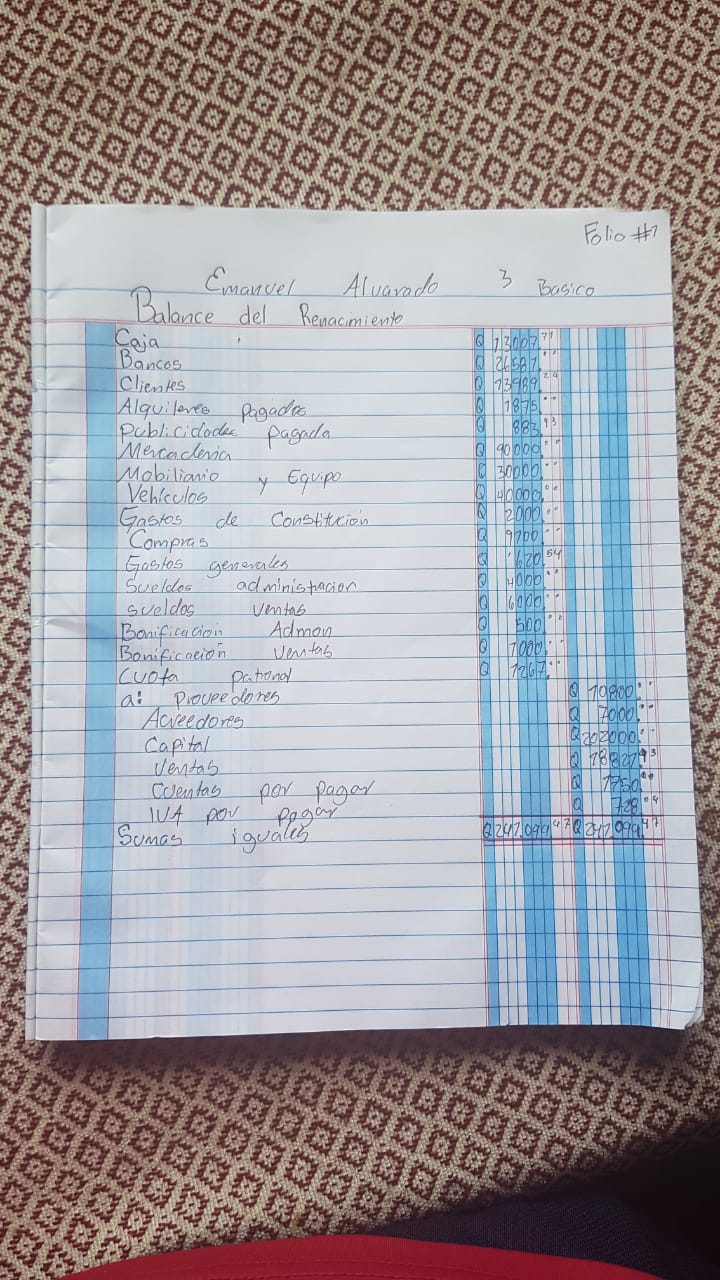 Folio #1
Emanuel Alvarado 3 Basico
Balance del Renacimiento
Caja Q 13007.71
Bancos Q 26587.--
Clientes Q 13989.29
Alquileres pagados Q 1875.--
Publicidades pagada Q 883.93
Mercaderia Q 90000.00
Mobiliario y Equipo Q 30000.--
Vehículos Q 40000.00
Gastos de Constitucion Q 2000.00
Compras Q 9700.--
Gastos generales Q 620.54
Sueldos administracion Q 4000.00
sueldos ventas Q 6000.--
Bonificacion Admon Q 500.--
Bonificación ventas Q 1000.--
Cuota patronal Q 1267.--
a: Proveedores Q 10800.--
Acreedores Q 7000.--
Capital Q 202000.--
Ventas Q
Cuentas por pagar Q 1750.00
IVA por pagar Q 728.04
Sumas iguales Q 241.099.47 Q 241.099.47